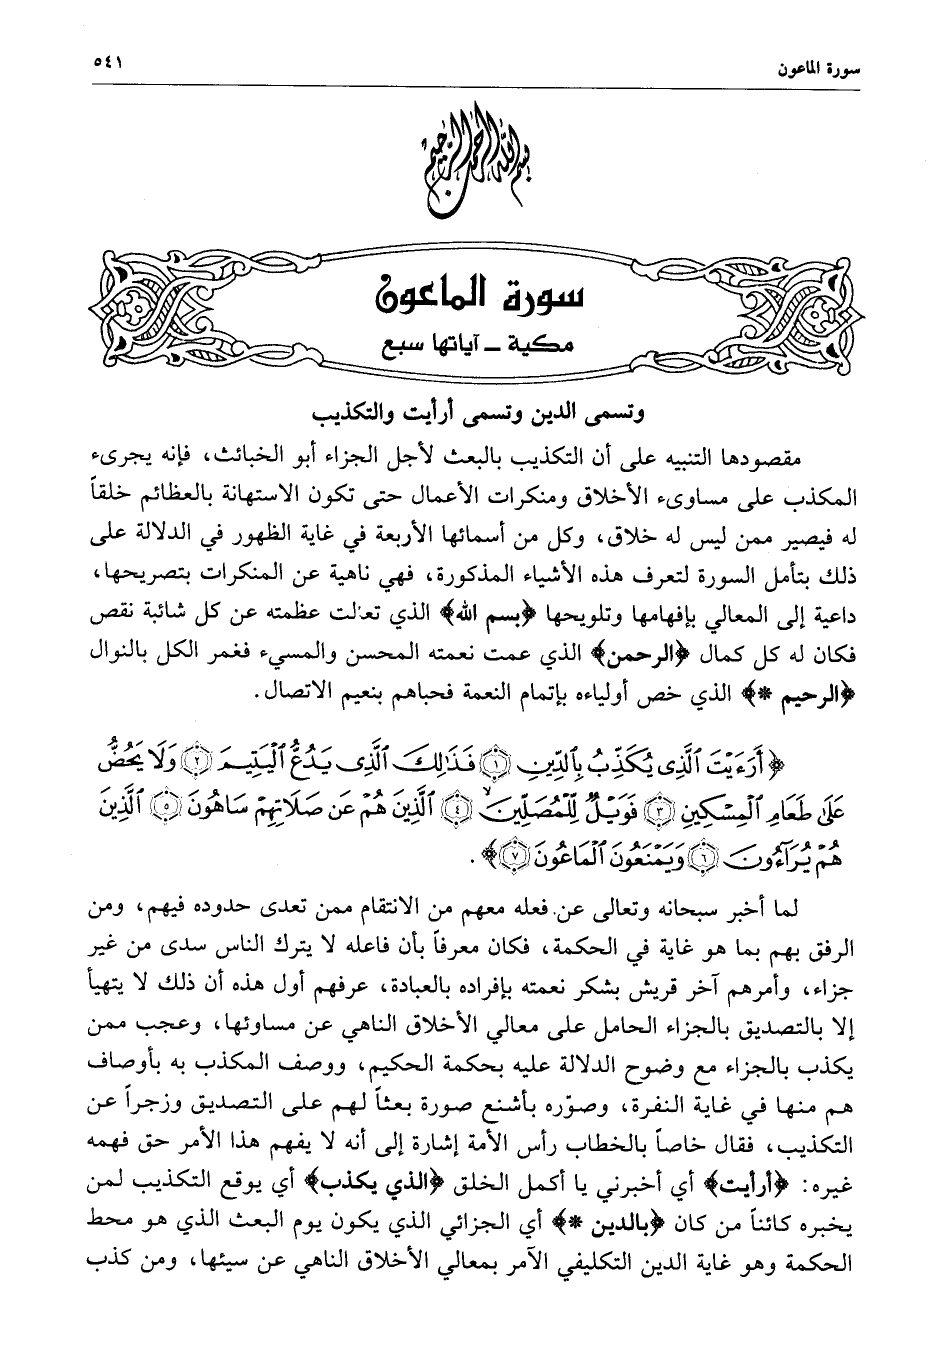 سورة الماعون
٥٤١
بسم الله الرحمن الرحيم
سورة الماعون
مكية ـ آياتها سبع
وتسمى الدين وتسمى أرأيت والتكذيب
مقصودها التنبيه على أن التكذيب بالبعث لأجل الجزاء أبو الخبائث، فإنه يجرىء
المكذب على مساوىء الأخلاق ومنكرات الأعمال حتى تكون الاستهانة بالعظائم خلقاً
له فيصير ممن ليس له خلاق، وكل من أسمائها الأربعة في غاية الظهور في الدلالة على
ذلك بتأمل السورة لتعرف هذه الأشياء المذكورة، فهي ناهية عن المنكرات بتصريحها،
داعية إلى المعالي بإفهامها وتلويحها ﴿بسم الله﴾ الذي تعالت عظمته عن كل شائبة نقص
فكان له كل كمال ﴿الرحمن﴾ الذي عمت نعمته المحسن والمسيء فغمر الكل بالنوال
﴿الرحيم *﴾ الذي خص أولياءه بإتمام النعمة فحباهم بنعيم الاتصال.
﴿أَرَءَيْتَ ٱلَّذِى يُكَذِّبُ بِٱلدِّينِ ١ فَذَٰلِكَ ٱلَّذِى يَدُعُّ ٱلْيَتِيمَ ٢ وَلَا يَحُضُّ
عَلَىٰ طَعَامِ ٱلْمِسْكِينِ ٣ فَوَيْلٌ لِّلْمُصَلِّينَ ٤ ٱلَّذِينَ هُمْ عَن صَلَاتِهِمْ سَاهُونَ ٥ ٱلَّذِينَ
هُمْ يُرَآءُونَ ٦ وَيَمْنَعُونَ ٱلْمَاعُونَ ٧﴾.
لما أخبر سبحانه وتعالى عن فعله معهم من الانتقام ممن تعدى حدوده فيهم، ومن
الرفق بهم بما هو غاية في الحكمة، فكان معرفاً بأن فاعله لا يترك الناس سدى من غير
جزاء، وأمرهم آخر قريش بشكر نعمته بإفراده بالعبادة، عرفهم أول هذه أن ذلك لا يتهيأ
إلا بالتصديق بالجزاء الحامل على معالي الأخلاق الناهي عن مساوئها، وعجب ممن
يكذب بالجزاء مع وضوح الدلالة عليه بحكمة الحكيم، ووصف المكذب به بأوصاف
هم منها في غاية النفرة، وصوّره بأشنع صورة بعثاً لهم على التصديق وزجراً عن
التكذيب، فقال خاصاً بالخطاب رأس الأمة إشارة إلى أنه لا يفهم هذا الأمر حق فهمه
غيره: ﴿أرأيت﴾ أي أخبرني يا أكمل الخلق ﴿الذي يكذب﴾ أي يوقع التكذيب لمن
يخبره كائناً من كان ﴿بالدين *﴾ أي الجزائي الذي يكون يوم البعث الذي هو محط
الحكمة وهو غاية الدين التكليفي الآمر بمعالي الأخلاق الناهي عن سيئها، ومن كذب